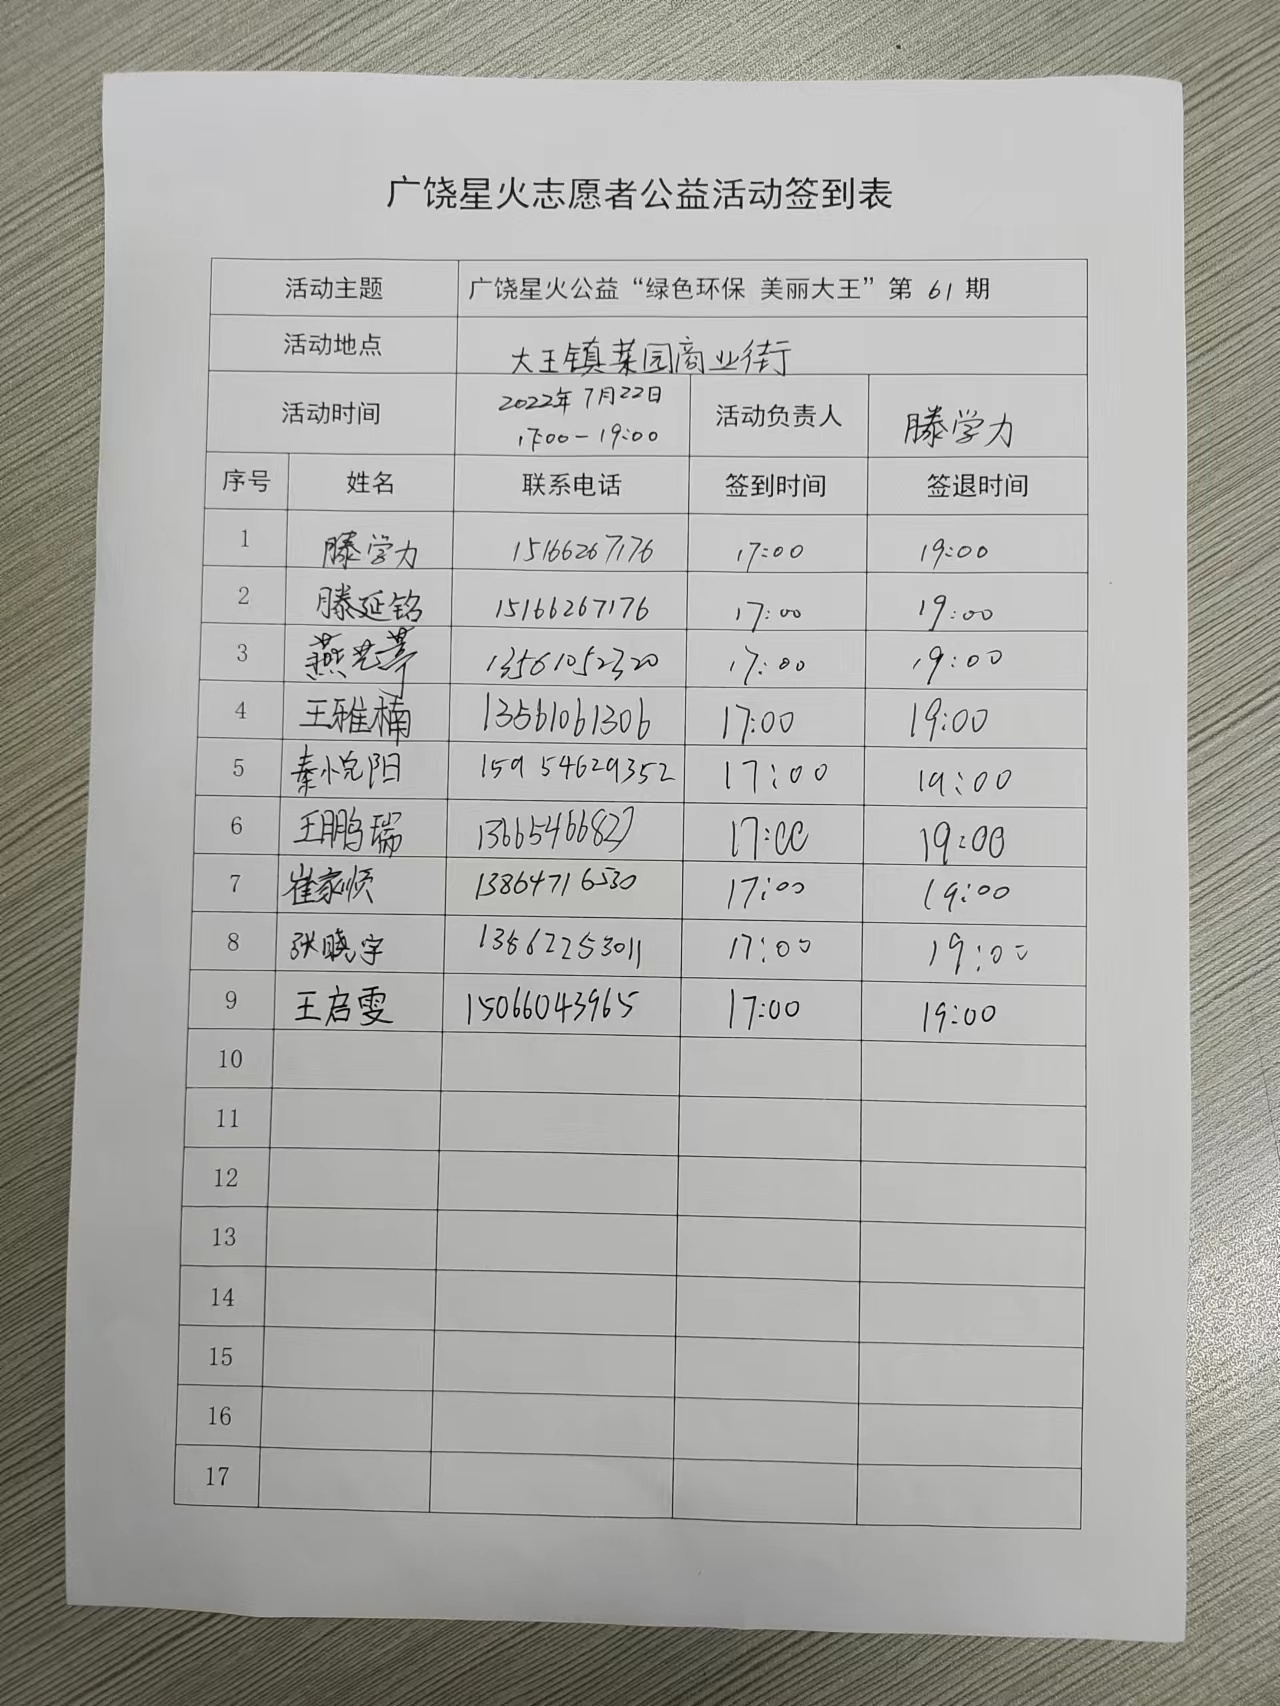 广饶星火志愿者公益活动签到表
活动主题 广饶星火公益“绿色环保 美丽大王”第 61 期
活动地点 大王镇菜园商业街
活动时间 2022年7月22日 17:00-19:00 活动负责人 滕学力
序号 姓名 联系电话 签到时间 签退时间
1 滕学力 15166267176 17:00 19:00
2 滕延铭 15166267176 17:00 19:00
3 燕 13561052320 17:00 19:00
4 王雅楠 13561061306 17:00 19:00
5 秦悦阳 15954629352 17:00 19:00
6 王鹏瑞 13665466827 17:00 19:00
7 崔家顺 13864716530 17:00 19:00
8 张晓宇 13562253011 17:00 19:00
9 王启雯 15066043965 17:00 19:00
10
11
12
13
14
15
16
17